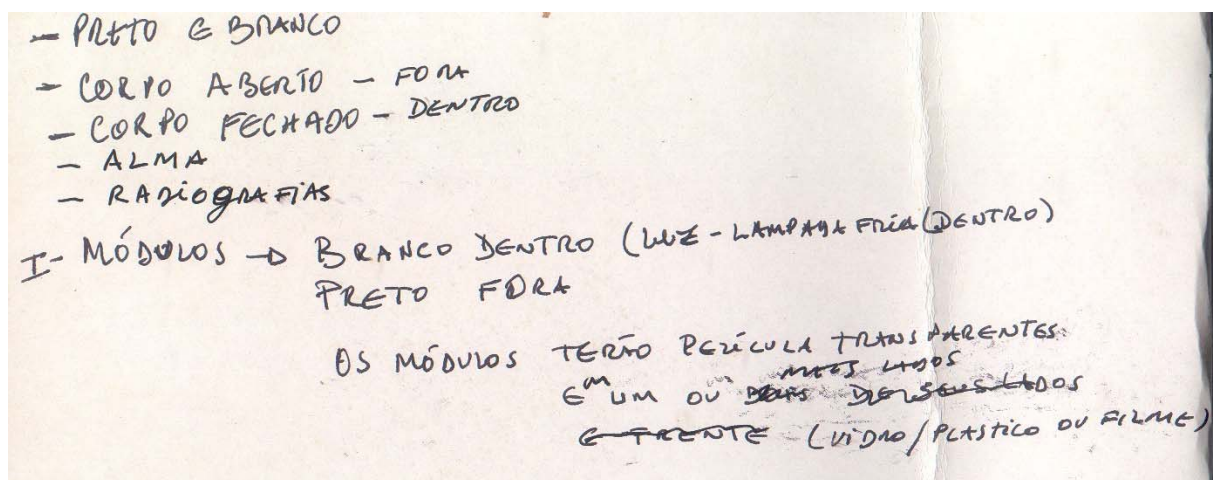 - PRETO E BRANCO
- CORPO ABERTO - FORA
- CORPO FECHADO - DENTRO
- ALMA
- RADIOGRAFIAS
I- MÓDULOS → BRANCO DENTRO (LUZ - LAMPADA FRIA (DENTRO)
PRETO FORA
OS MÓDULOS TERÃO PELÍCULA TRANSPARENTES
MAIS LADOS
EM UM OU DOIS DE SEUS LADOS
E FRENTE (VIDRO/PLASTICO OU FILME)